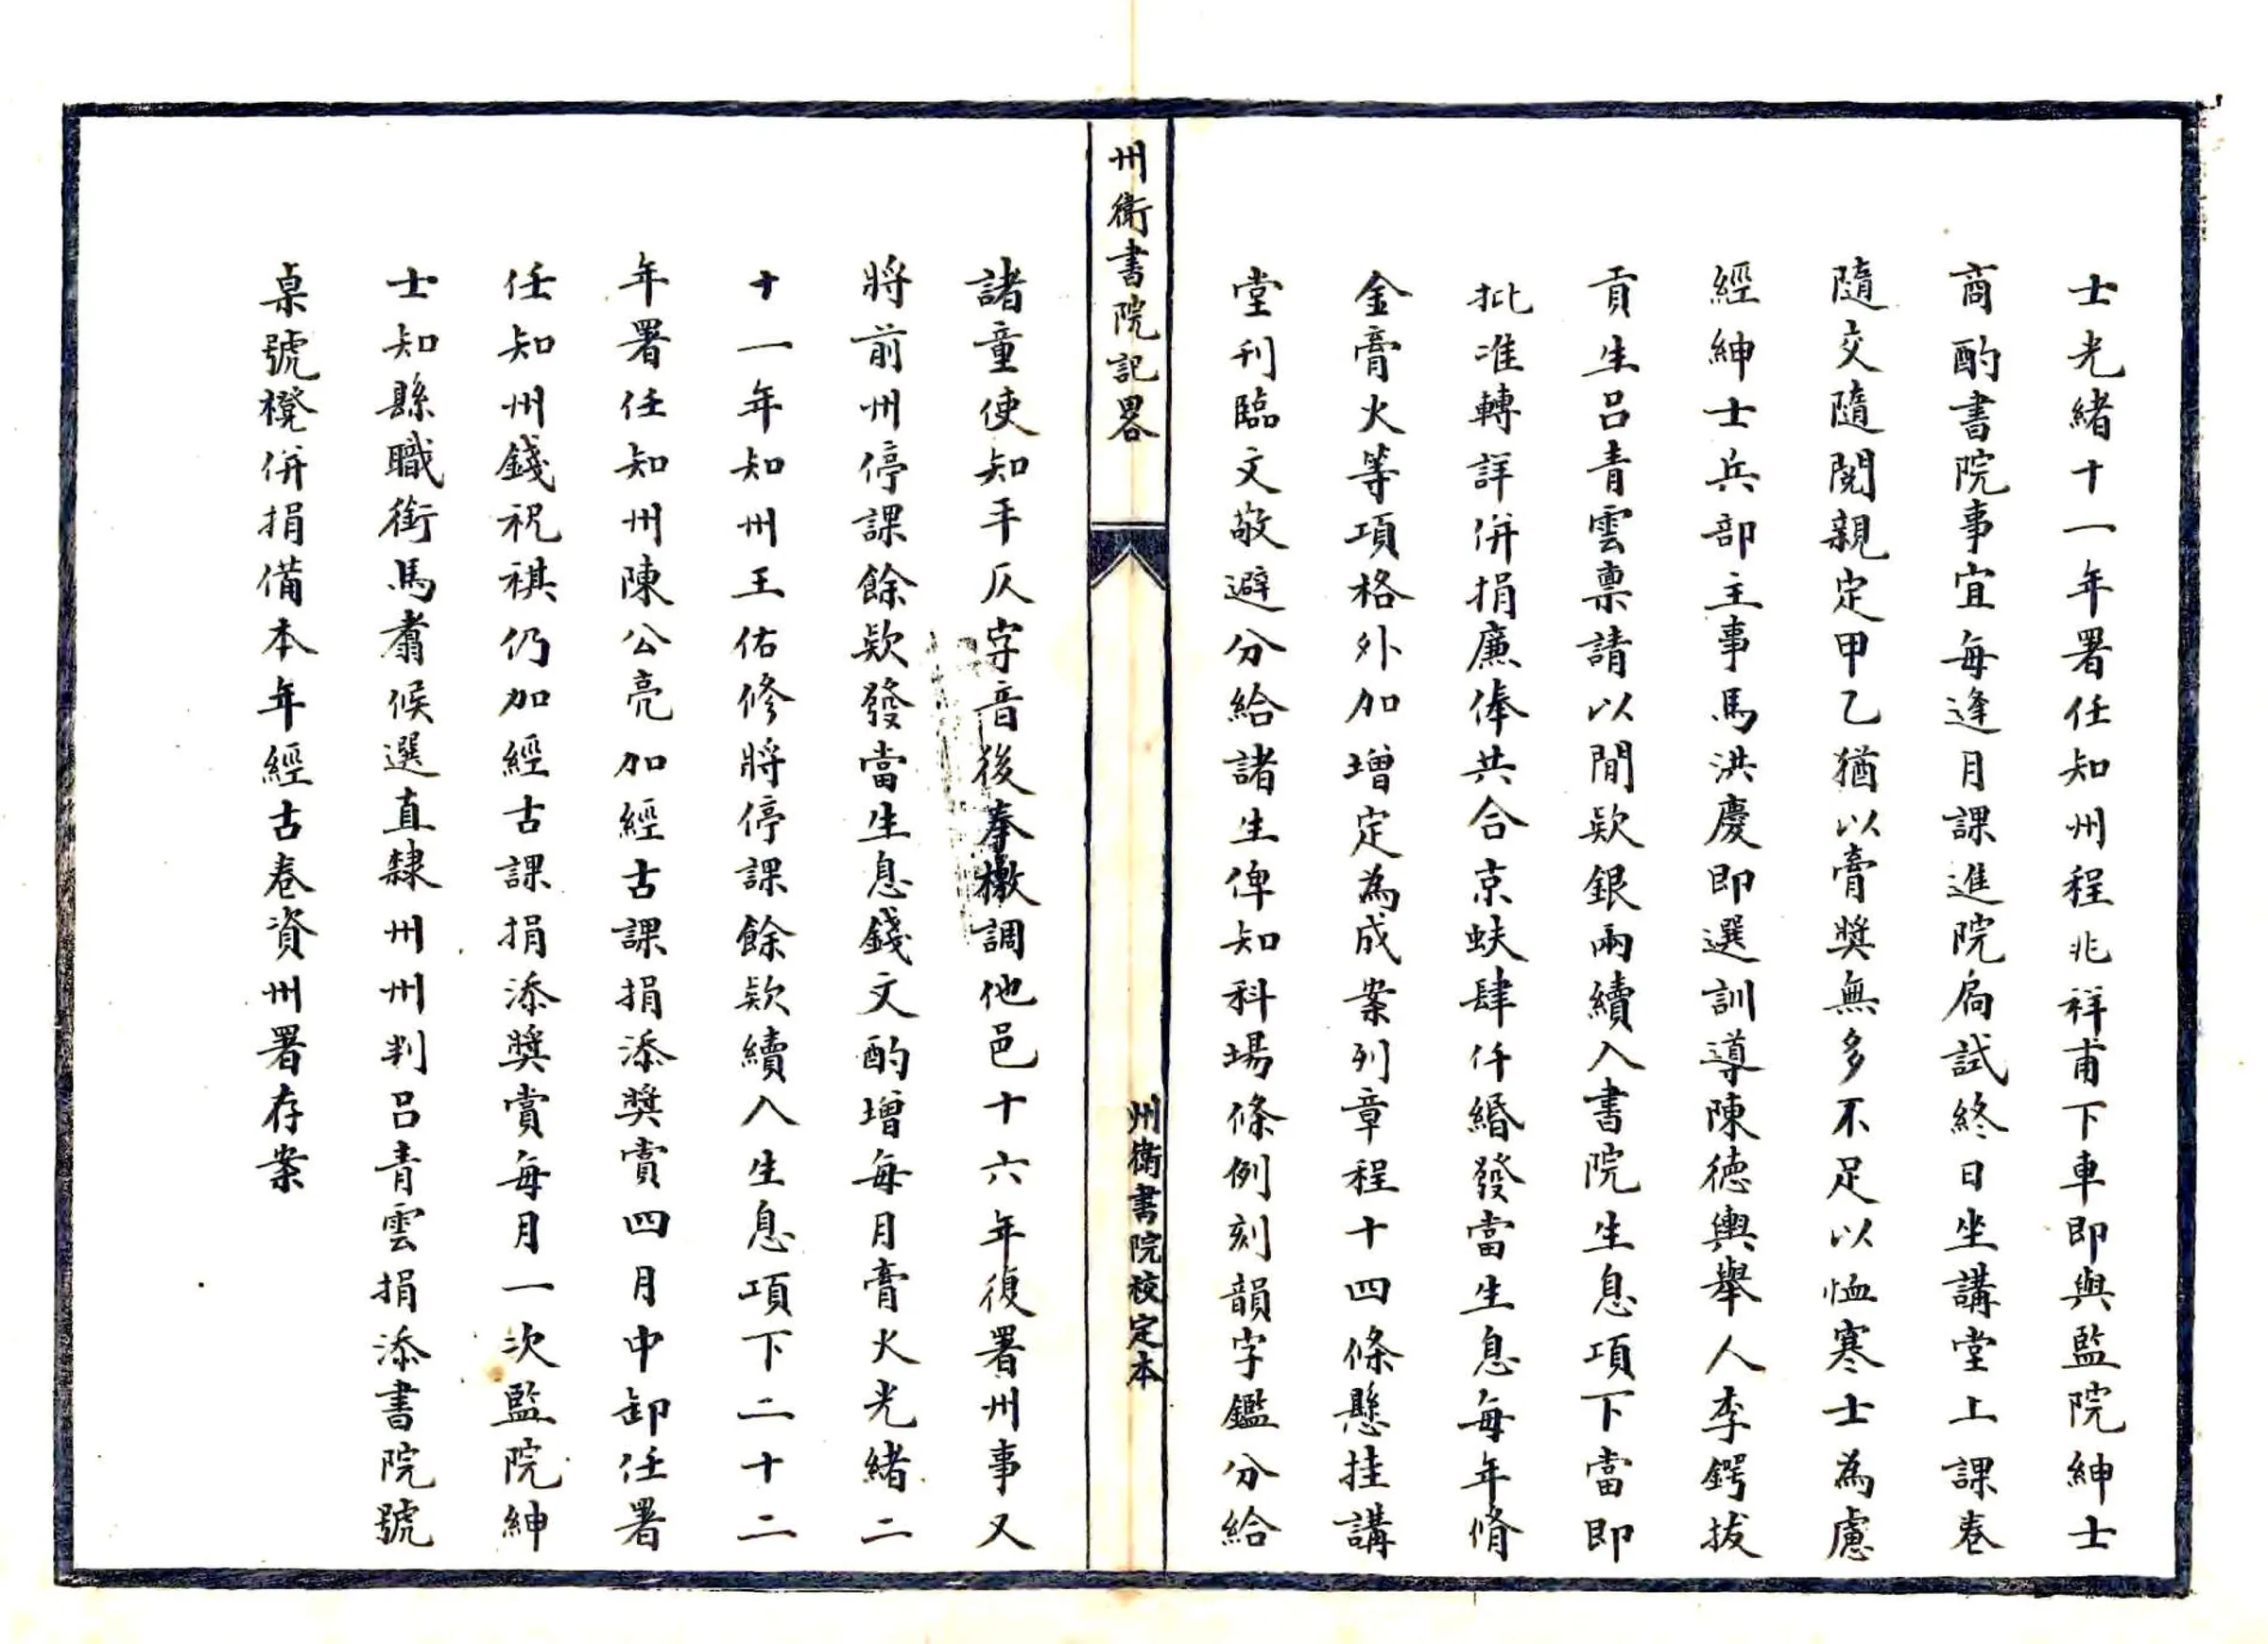 士光緒十一年署任知州程兆祥甫下車即與監院紳士
商酌書院事宜每逢月課進院扄試終日坐講堂上課卷
隨交隨閱親定甲乙猶以膏奬無多不足以恤寒士為慮
經紳士兵部主事馬洪慶即選訓導陳德輿舉人李鍔拔
貢生呂青雲禀請以閒欵銀兩續入書院生息項下當即
批准轉詳併捐廉俸共合京蚨肆仟緡發當生息每年脩
金膏火等項格外加增定為成案列章程十四條懸挂講
堂刊臨文敬避分給諸生俾知科場條例刻韻字鑑分給
州衛書院記畧
州衛書院校定本
諸童使知平仄字音後奉檄調他邑十六年復署州事又
將前州停課餘欵發當生息錢文酌增每月膏火光緒二
十一年知州王佑修將停課餘欵續入生息項下二十二
年署任知州陳公亮加經古課捐添奬賞四月中卸任署
任知州錢祝祺仍加經古課捐添奬賞每月一次監院紳
士知縣職銜馬翥候選直隸州州判呂青雲捐添書院號
桌號櫈併捐備本年經古卷資州署存案